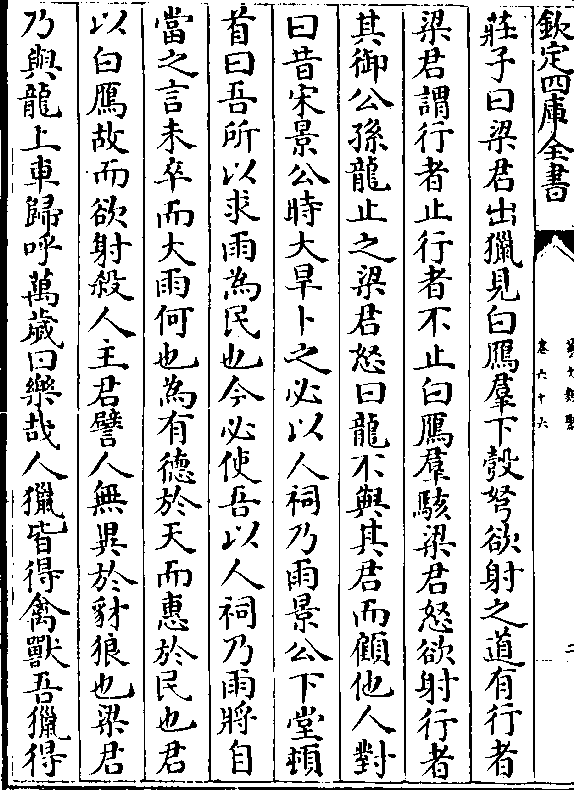 欽定四庫全書
卷六十六
二
莊子曰梁君出獵見白鴈羣下彀弩欲射之道有行者
梁君謂行者止行者不止白鴈羣駭梁君怒欲射行者
其御公孫龍止之梁君怒曰龍不與其君而顧他人對
曰昔宋景公時大旱卜之必以人祠乃雨景公下堂頓
首曰吾所以求雨為民也今必使吾以人祠乃雨將自
當之言未卒而大雨何也為有德於天而惠於民也君
以白鴈故而欲射殺人主君譬人無異於豺狼也梁君
乃與龍上車歸呼萬歲曰樂哉人獵皆得禽獸吾獵得